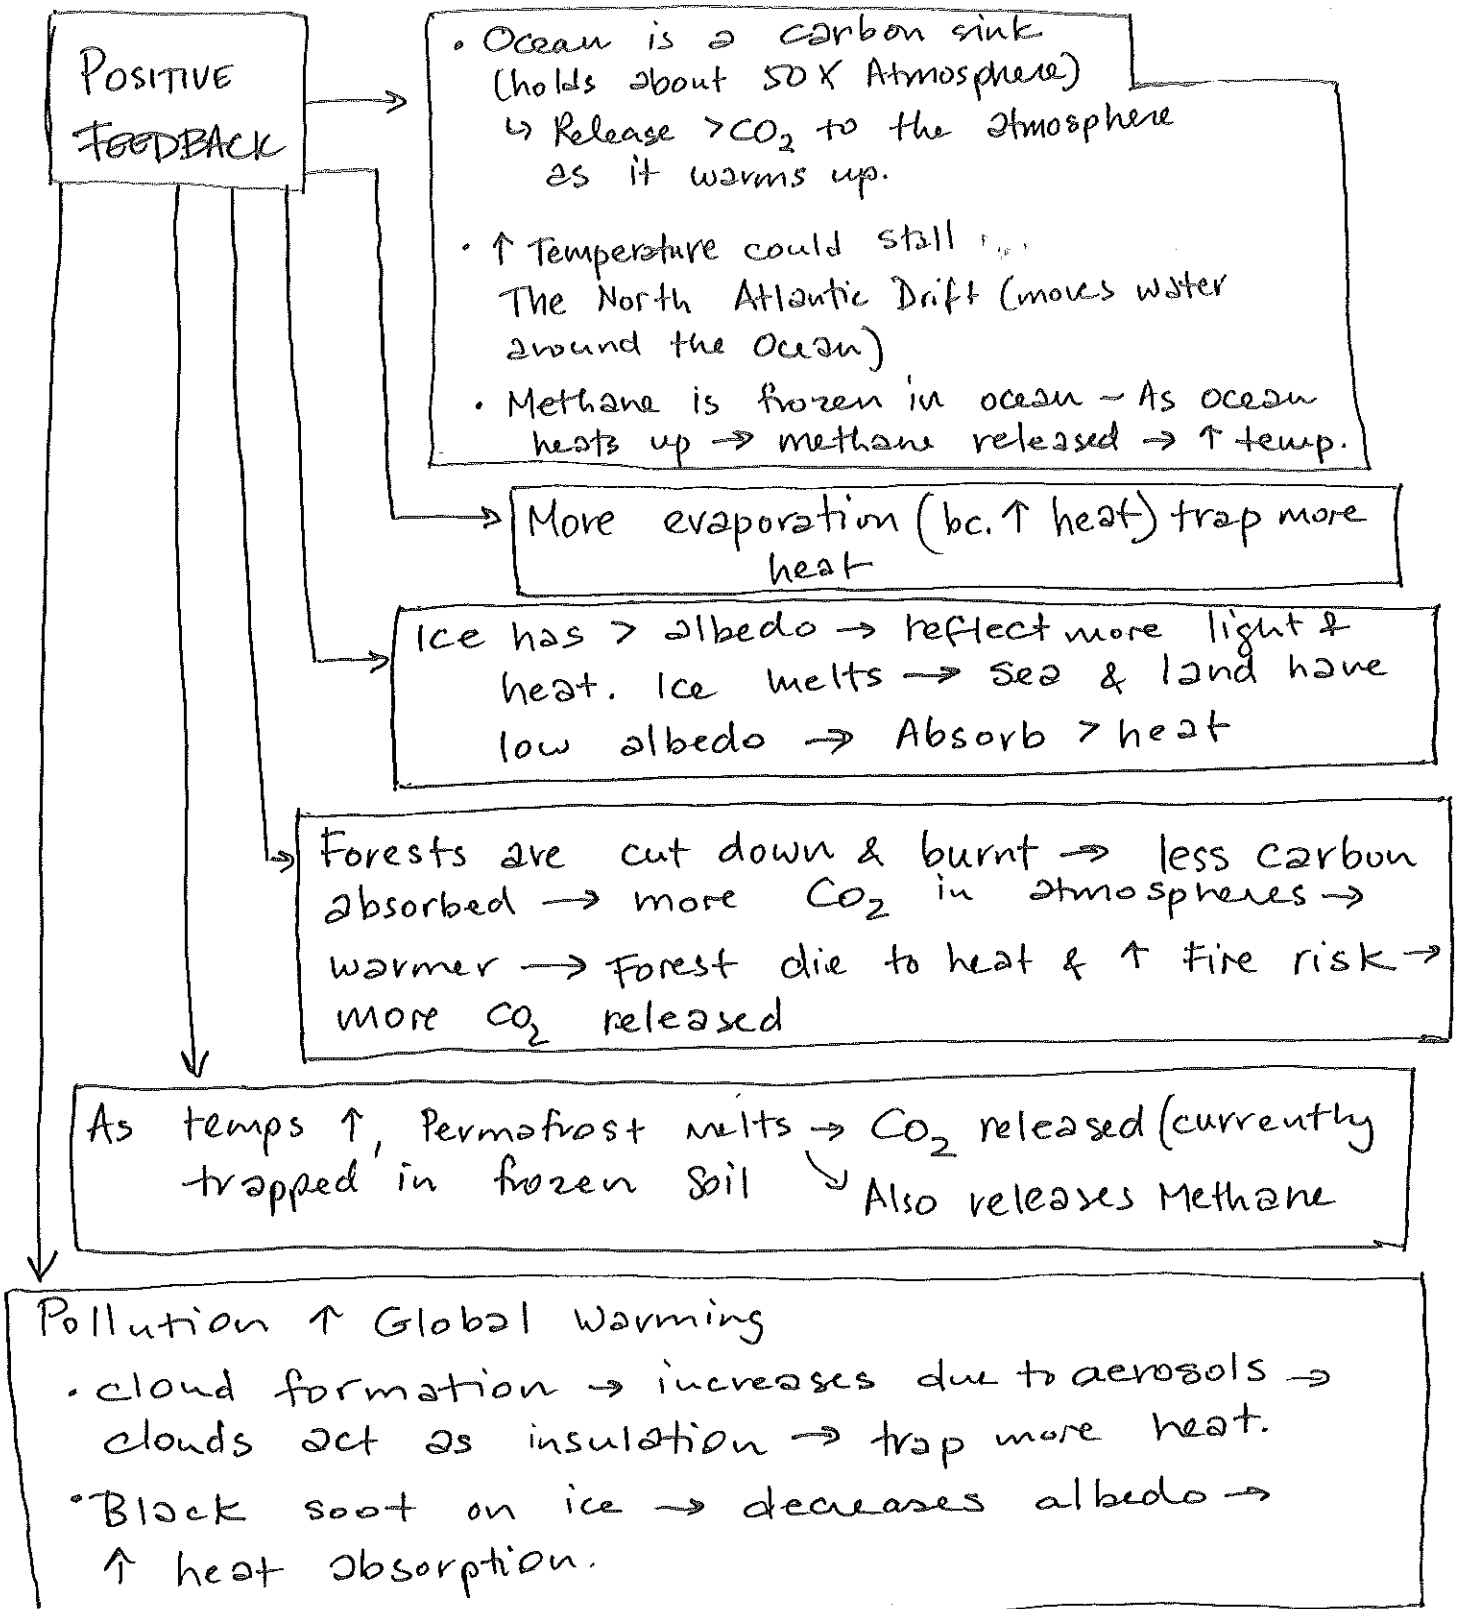 POSITIVE
FEEDBACK
• Ocean is a carbon sink
(holds about 50X Atmosphere)
↳ Release >CO₂ to the atmosphere
as it warms up.
• ↑ Temperature could stall
The North Atlantic Drift (moves water
around the Ocean)
• Methane is frozen in ocean - As ocean
heats up → methane released → ↑ temp.
More evaporation (bc. ↑ heat) trap more
heat
Ice has > albedo → reflect more light &
heat. Ice melts → sea & land have
low albedo → Absorb > heat
Forests are cut down & burnt → less carbon
absorbed → more CO₂ in atmospheres →
warmer → Forest die to heat & ↑ Fire risk →
more CO₂ released
As temps ↑, Permafrost melts → CO₂ released (currently
trapped in frozen soil ↘ Also releases Methane
Pollution ↑ Global Warming
• cloud formation → increases due to aerosols →
clouds act as insulation → trap more heat.
• Black soot on ice → decreases albedo →
↑ heat absorption.